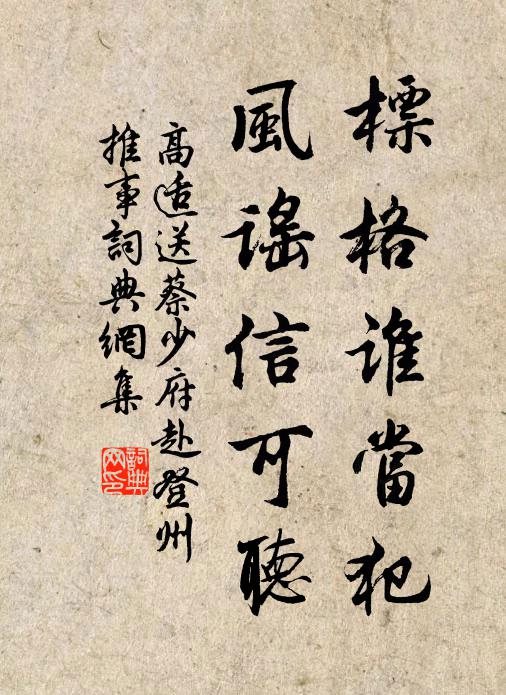 標格誰當犯
風謠信可聽
高適送蔡少府赴登州
推事詞典網集
詞典網印